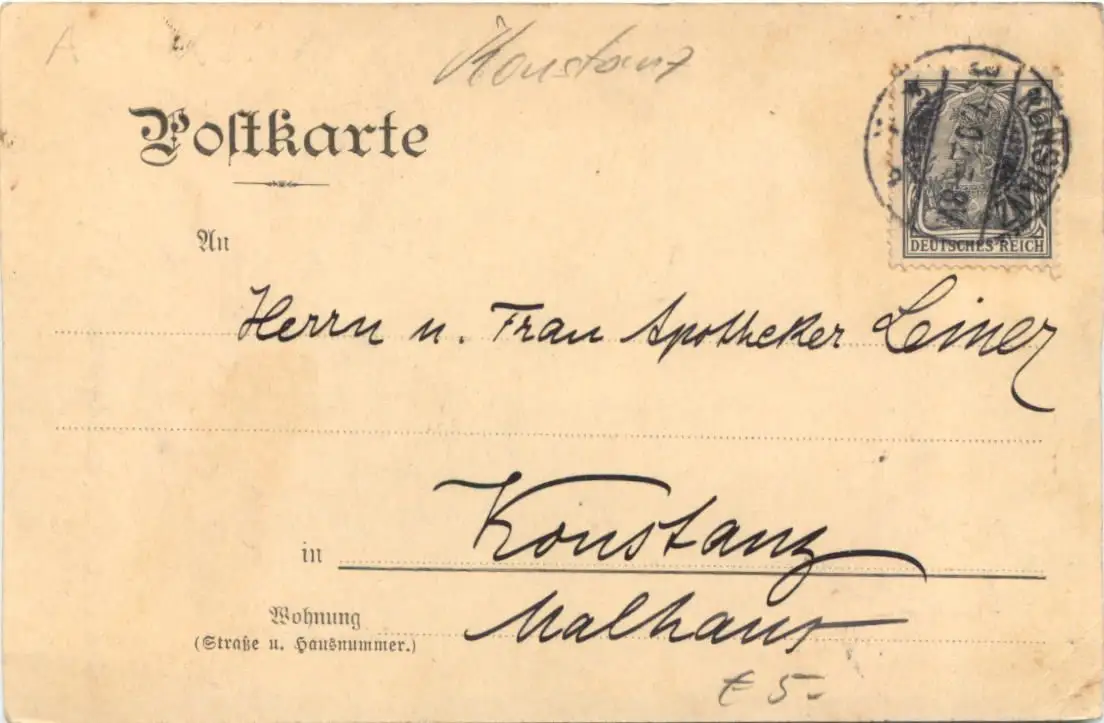 Konstanz
Postkarte
2
DEUTSCHES REICH
KONSTANZ
An
Herrn u. Frau Apotheker Leiner
in Konstanz
Wohnung Malhaus
(Straße u. Hausnummer.)
€ 5.-